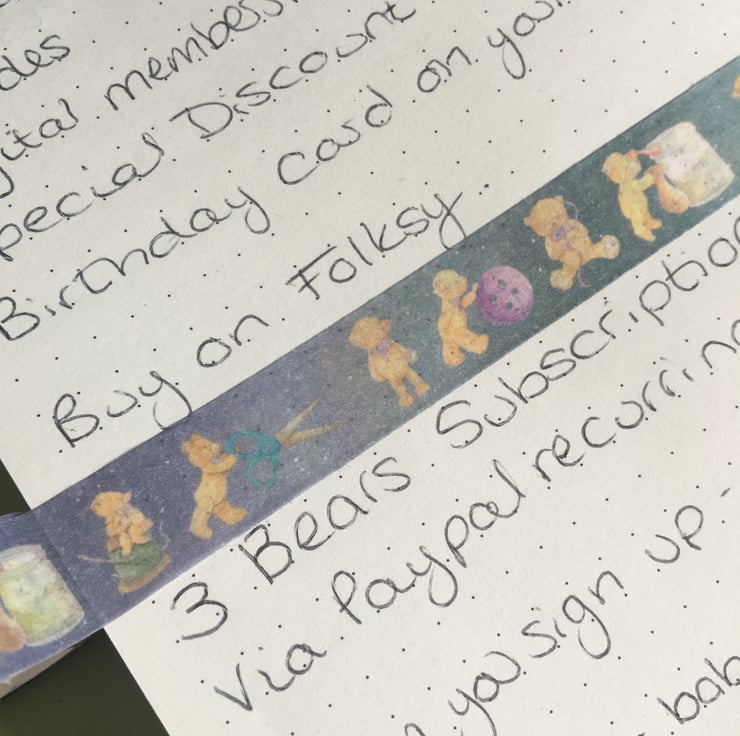 des
ital members
pecial Discount
Birthday Card on you
Buy on Folksy.
3 Bears Subscription
Via Paypal recurrin
you sign up -
bab